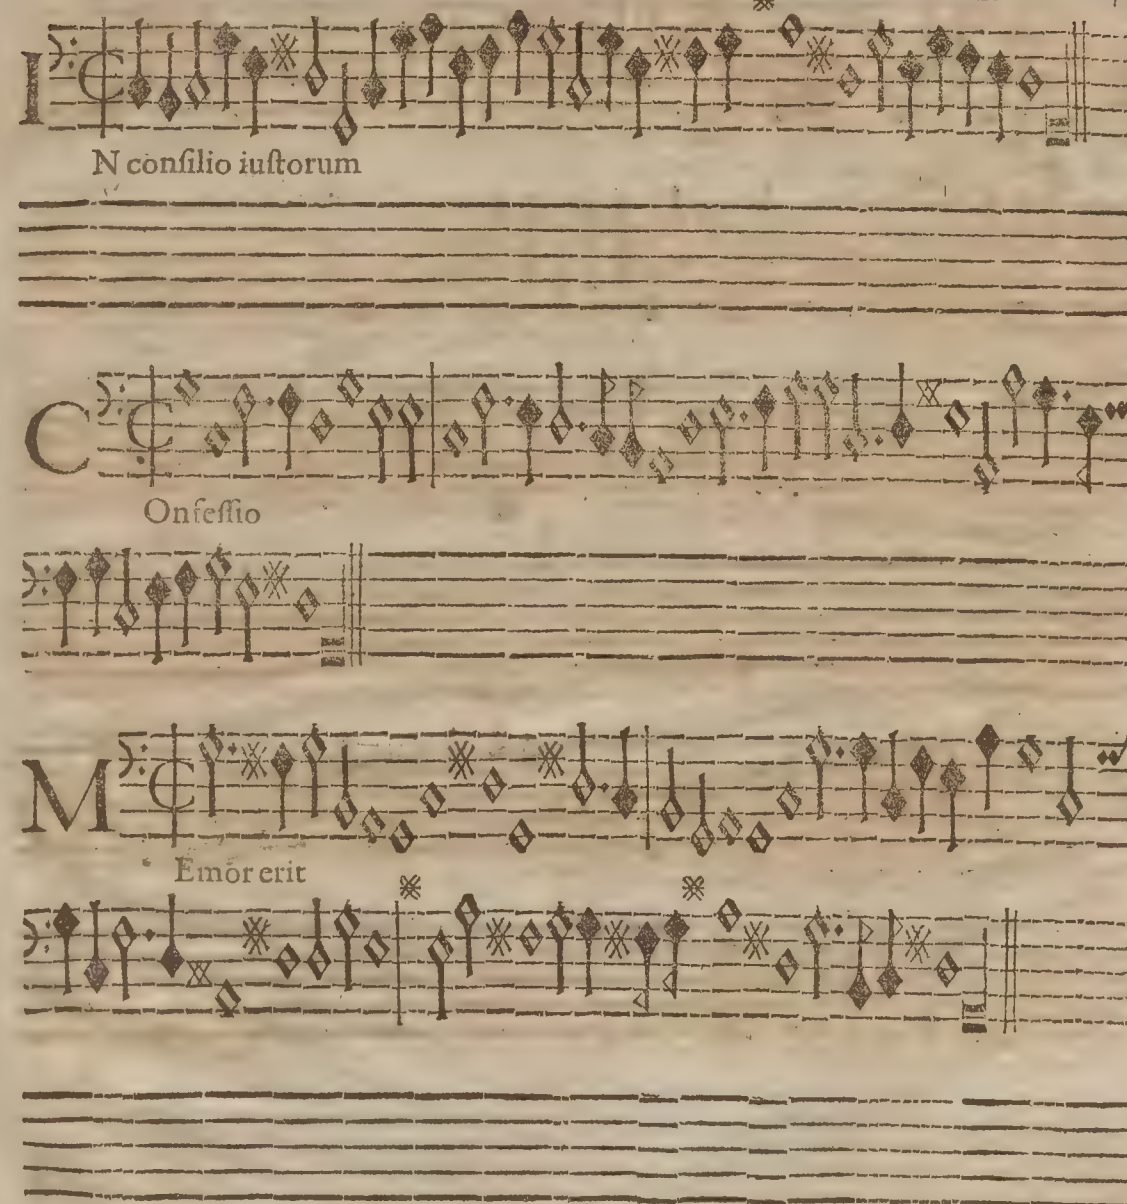 IN conſilio iuſtorum
COnfeſſio
MEmor erit